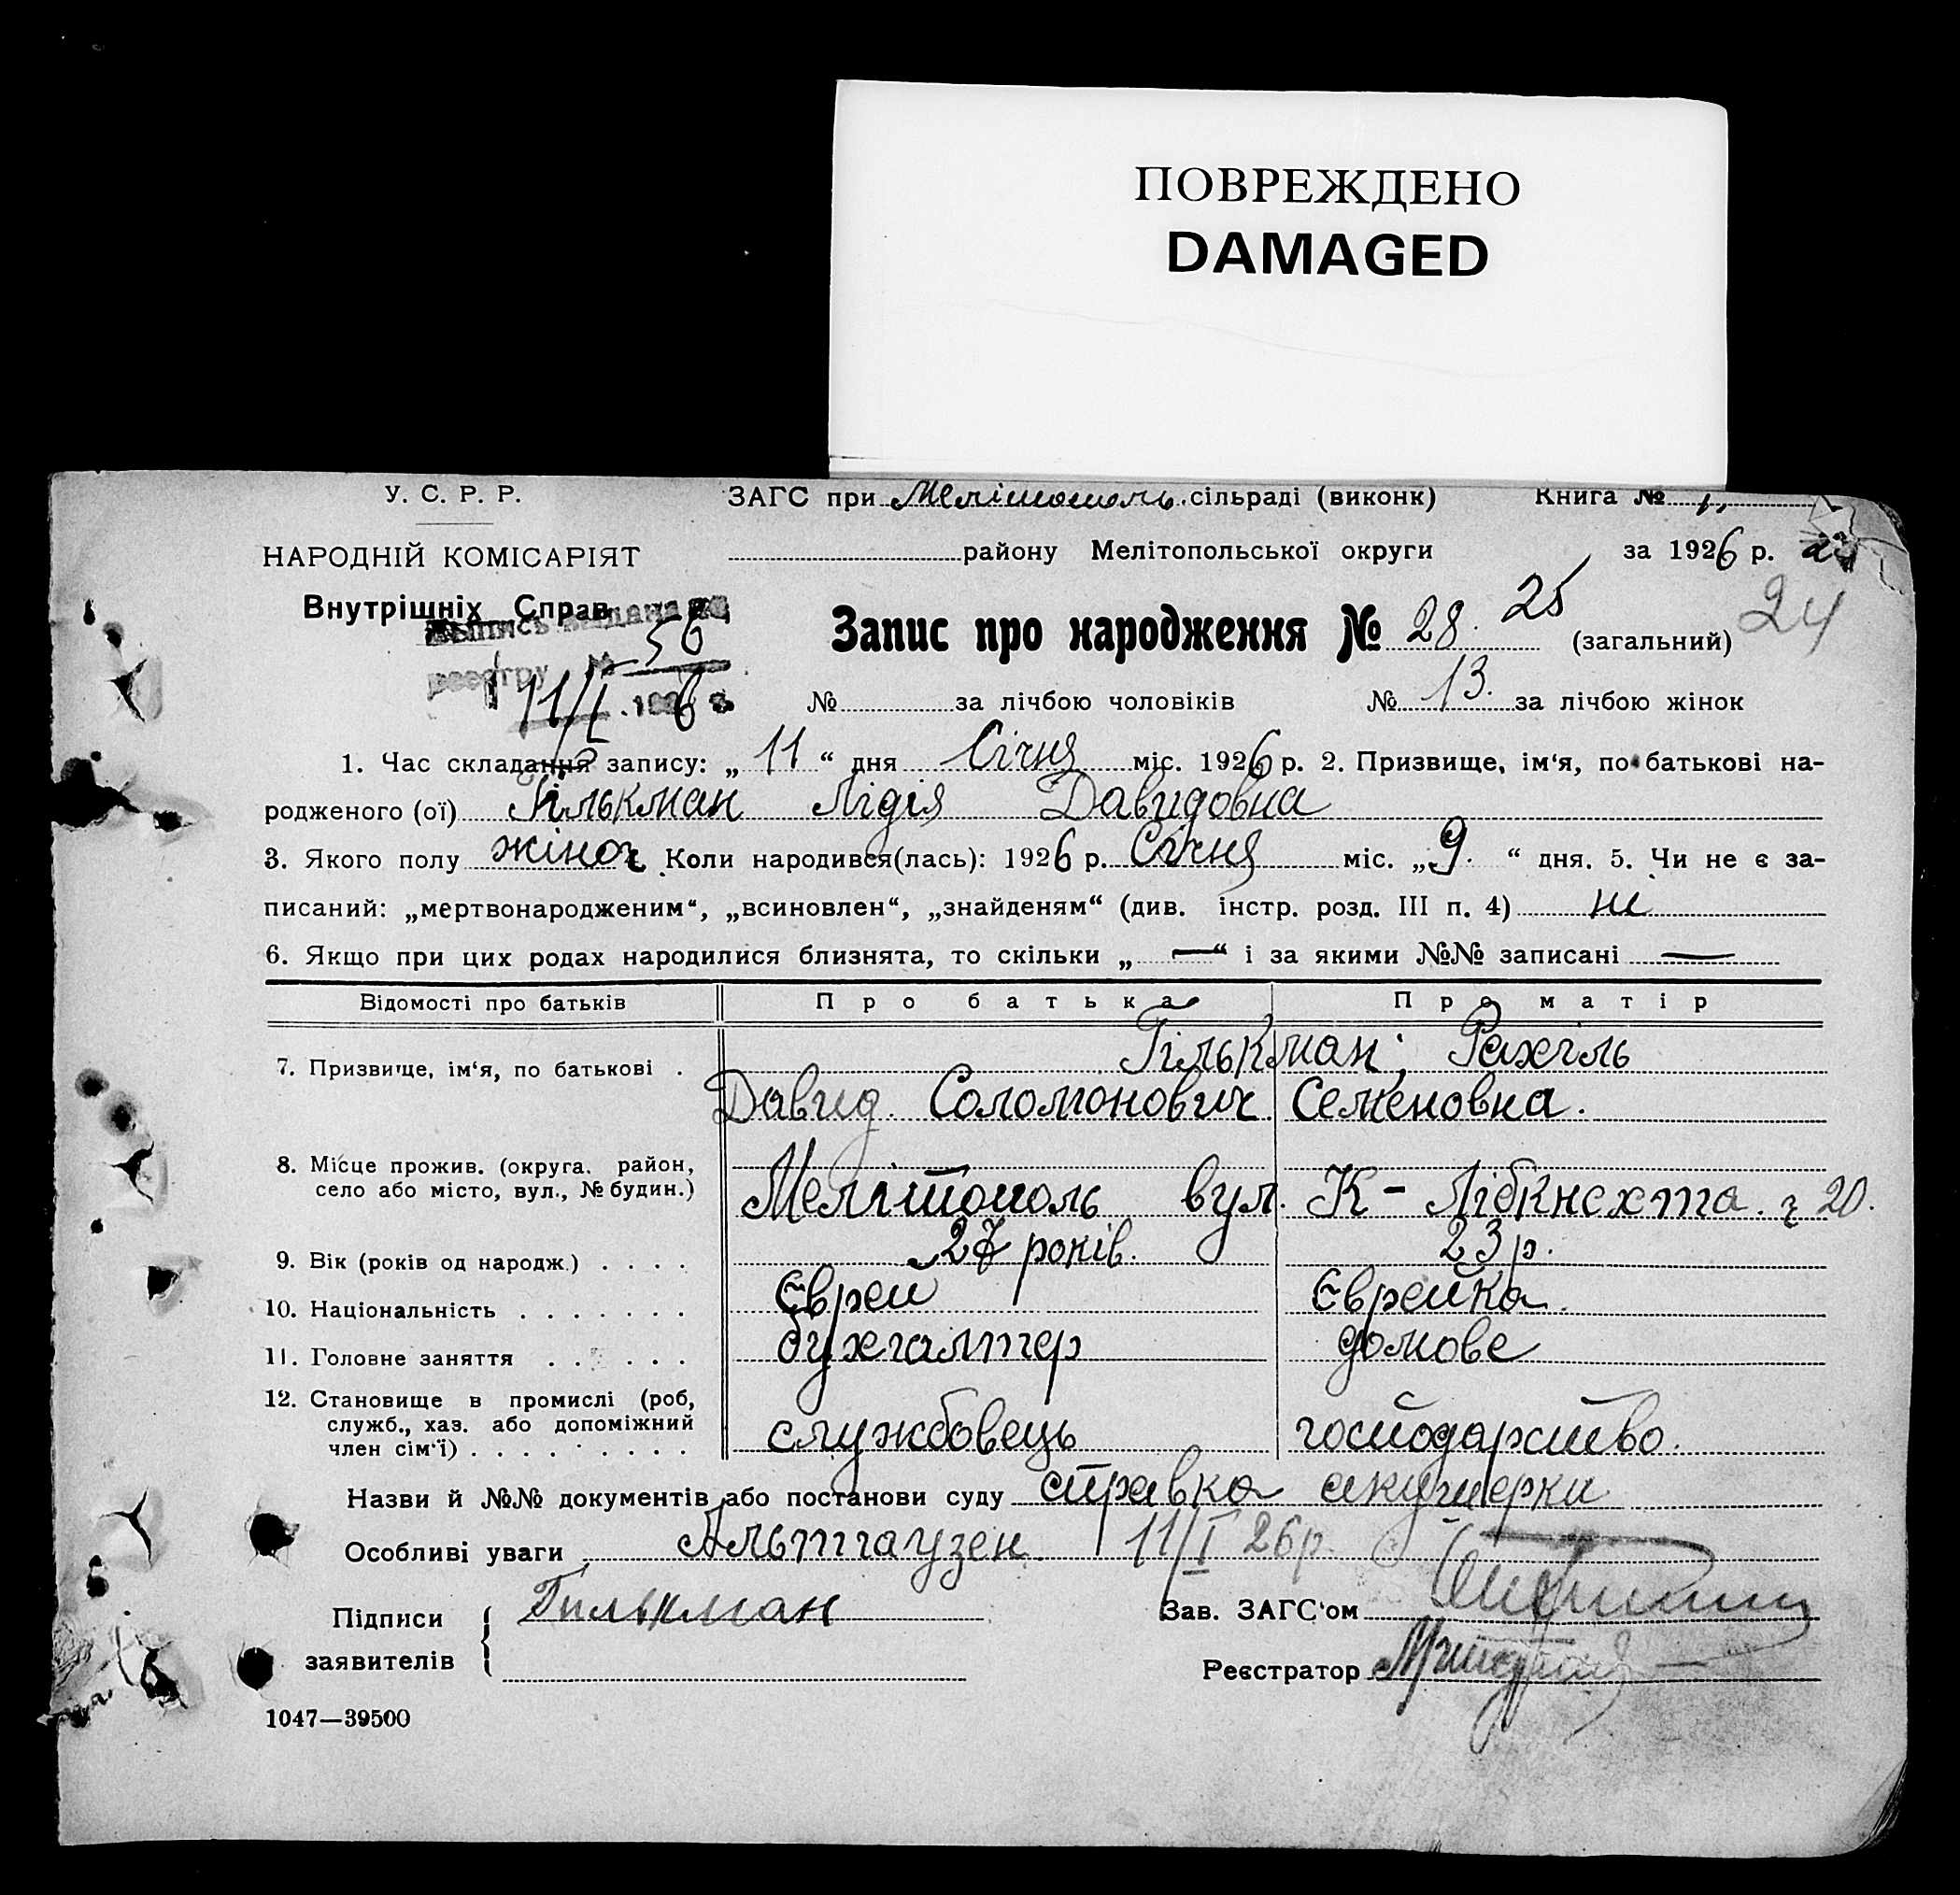 ПОВРЕЖДЕНО
DAMAGED
У. С. Р. Р.
ЗАГС при Мелітополь сільраді (виконк) Книга № 1
НАРОДНІЙ КОМІСАРІЯТ
району Мелітопольської округи за 1926 р.
Внутрішніх Справ
Выпись выдана
56
реестру №
11/I 1926
Запис про народження № 28. 25 (загальний) 24
№ за лічбою чоловіків № 13. за лічбою жінок
1. Час складання запису: „11“ дня Січня міс. 1926 р. 2. Призвище, ім'я, по батькові на-
родженого (ої) Гількман Лідія Давидовна
3. Якого полу жіноч. Коли народився(лась): 1926 р. Січня міс. „9.“ дня. 5. Чи не є за-
писаний: „мертвонародженим“, „всиновлен“, „знайденям“ (див. інстр. розд. III п. 4) ні
6. Якщо при цих родах народилися близнята, то скільки „—“ і за якими №№ записані —
Відомості про батьків Про батька Про матір
7. Призвище, ім'я, по батькові . Гількман; Рахіль
Давид Соломонович Семеновна.
8. Місце прожив. (округа. район,
село або місто, вул., № будин.) Мелітополь вул. К - Лібкнехта. ч 20.
9. Вік (років од народж.) . . . . 27 років. 23 р.
10. Національність . . . . . . . Єврей Єврейка.
11. Головне заняття . . . . . . бухгалтер домове
12. Становище в промислі (роб,
служб., хаз. або допоміжний
член сім'ї) . . . . . . . . . службовець господарство.
Назви й №№ документів або постанови суду справка акушерки
Особливі уваги Альтгаузен. 11/I 26р.
Підписи Гилькман Зав. ЗАГС'ом
заявителів Реєстратор
1047—39500